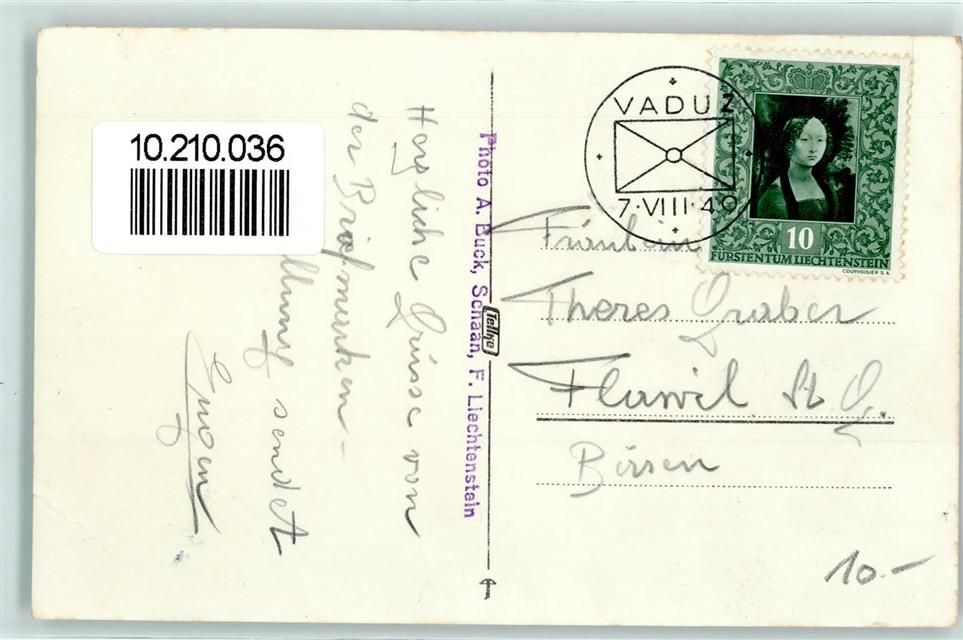 10.210.036
Herzliche Grüsse von
der Briefmarken-
llung sendet
Eugen
Photo A. Buck, Schaan, F. Liechtenstein
Tellko
VADUZ
7·VIII·49
10
FÜRSTENTUM LIECHTENSTEIN
COURVOISIER S.A.
Fräulein
Theres Graber
Flawil St. G.
10.-